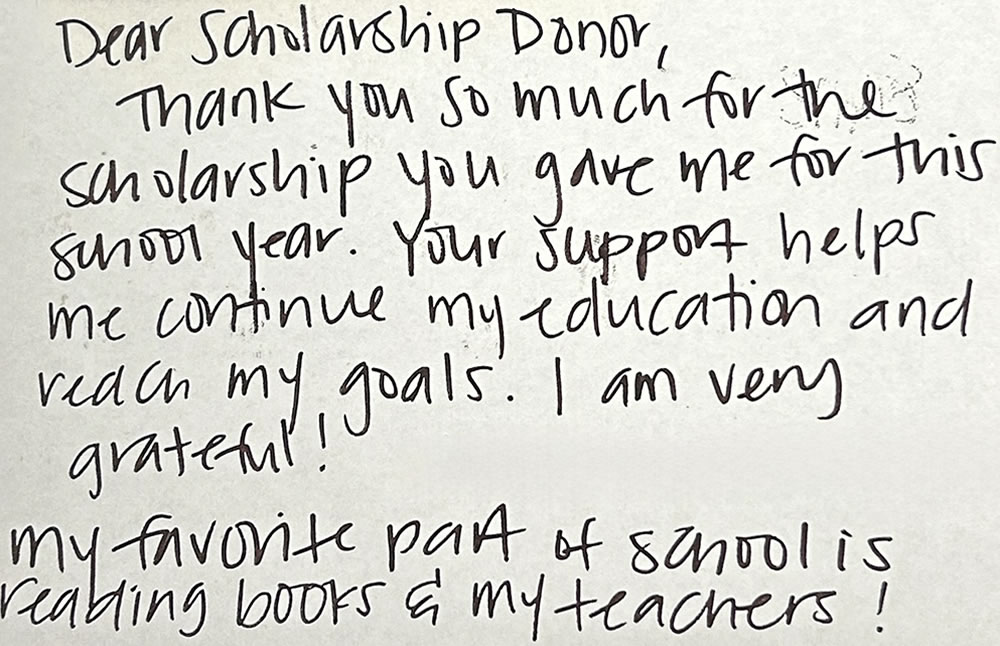 Dear Scholarship Donor,
Thank you so much for the
scholarship you gave me for this
school year. Your support helps
me continue my education and
reach my goals. I am very
grateful!
my favorite part of school is
reading books & my teachers!